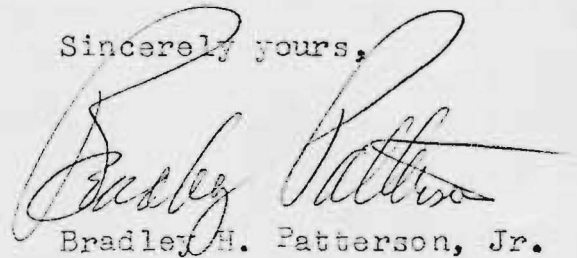 Sincerely yours,
Bradley Patterson
Bradley H. Patterson, Jr.